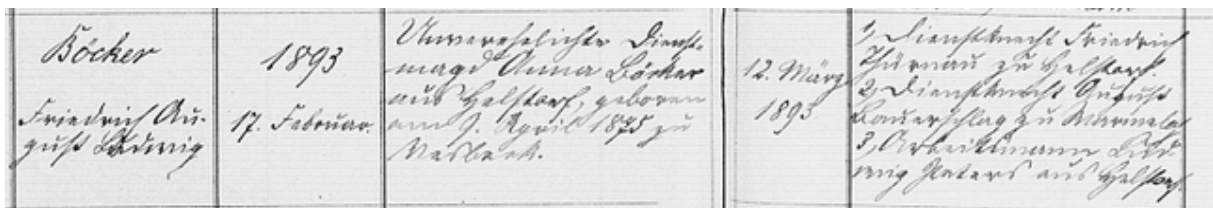 Böcker
Friedrich Au-
gust Ludwig
1893
17. Februar.
Unverehelichte Dienst-
magd Anna Böcker
aus Helstorf, geboren
am 9. April 1875 zu
Vesbeck.
12. März
1893
1, Dienstknecht Friedrich
Thürnau zu Helstorf.
2, Dienstknecht August
Bauerschlag zu Warmeloh
3, Arbeitsmann Lud-
wig Peters aus Helstorf.